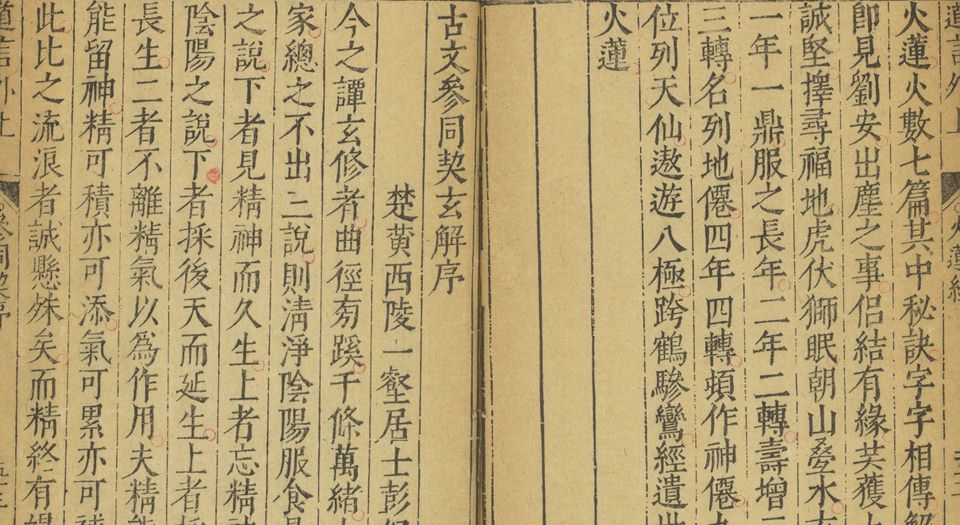 火蓮火數七篇其中秘訣字字相傳
卽見劉安出塵之事侶結有緣共獲
誠堅擇尋福地虎伏獅眠朝山疊水
一年一鼎服之長年二年二轉壽增
三轉名列地僊四年四轉頓作神僊
位列天仙遨遊八極跨鶴驂鸞經遺
火蓮
古文參同契玄解序
楚黃西陵一壑居士彭
今之譚玄修者曲徑旁蹊千條萬緒
家總之不出二說則清淨陰陽服食
之說下者見精神而久生上者忘精
陰陽之說下者採後天而延生上者
長生二者不離精氣以為作用夫精
能留神精可積亦可添氣可累亦可
此比之流浪者誠懸殊矣而精終有